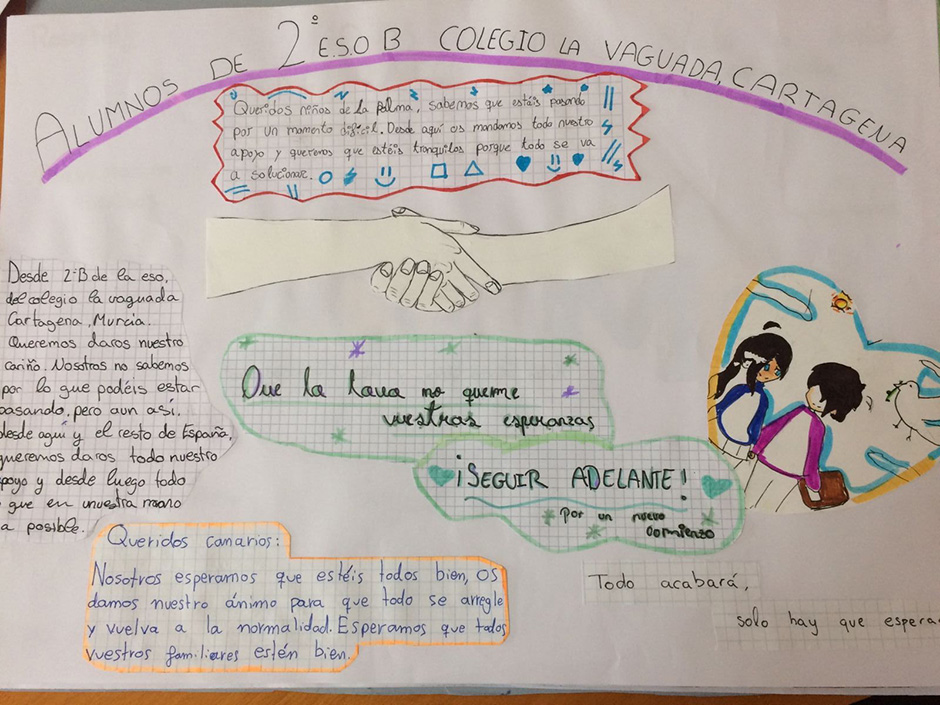 ALUMNOS DE 2º E.S.O B COLEGIO LA VAGUADA, CARTAGENA
Queridos niños de la Palma, sabemos que estáis pasando
por un momento difícil. Desde aquí os mandamos todo nuestro
apoyo y queremos que estéis tranquilos porque todo se va
a solucionar.
Desde 2ºB de la eso,
del colegio la vaguada
Cartagena, Murcia.
Queremos daros nuestro
cariño. Nosotros no sabemos
por lo que podéis estar
pasando, pero aun así,
desde aquí y el resto de España,
queremos daros todo nuestro
apoyo y desde luego todo
que en nuestra mano
a posible.
Que la lava no queme
vuestras esperanzas
¡SEGUIR ADELANTE!
Por un nuevo
comienzo
Queridos canarios:
Nosotros esperamos que estéis todos bien, os
damos nuestro ánimo para que todo se arregle
y vuelva a la normalidad. Esperamos que todos
vuestros familiares estén bien.
Todo acabará,
solo hay que espera